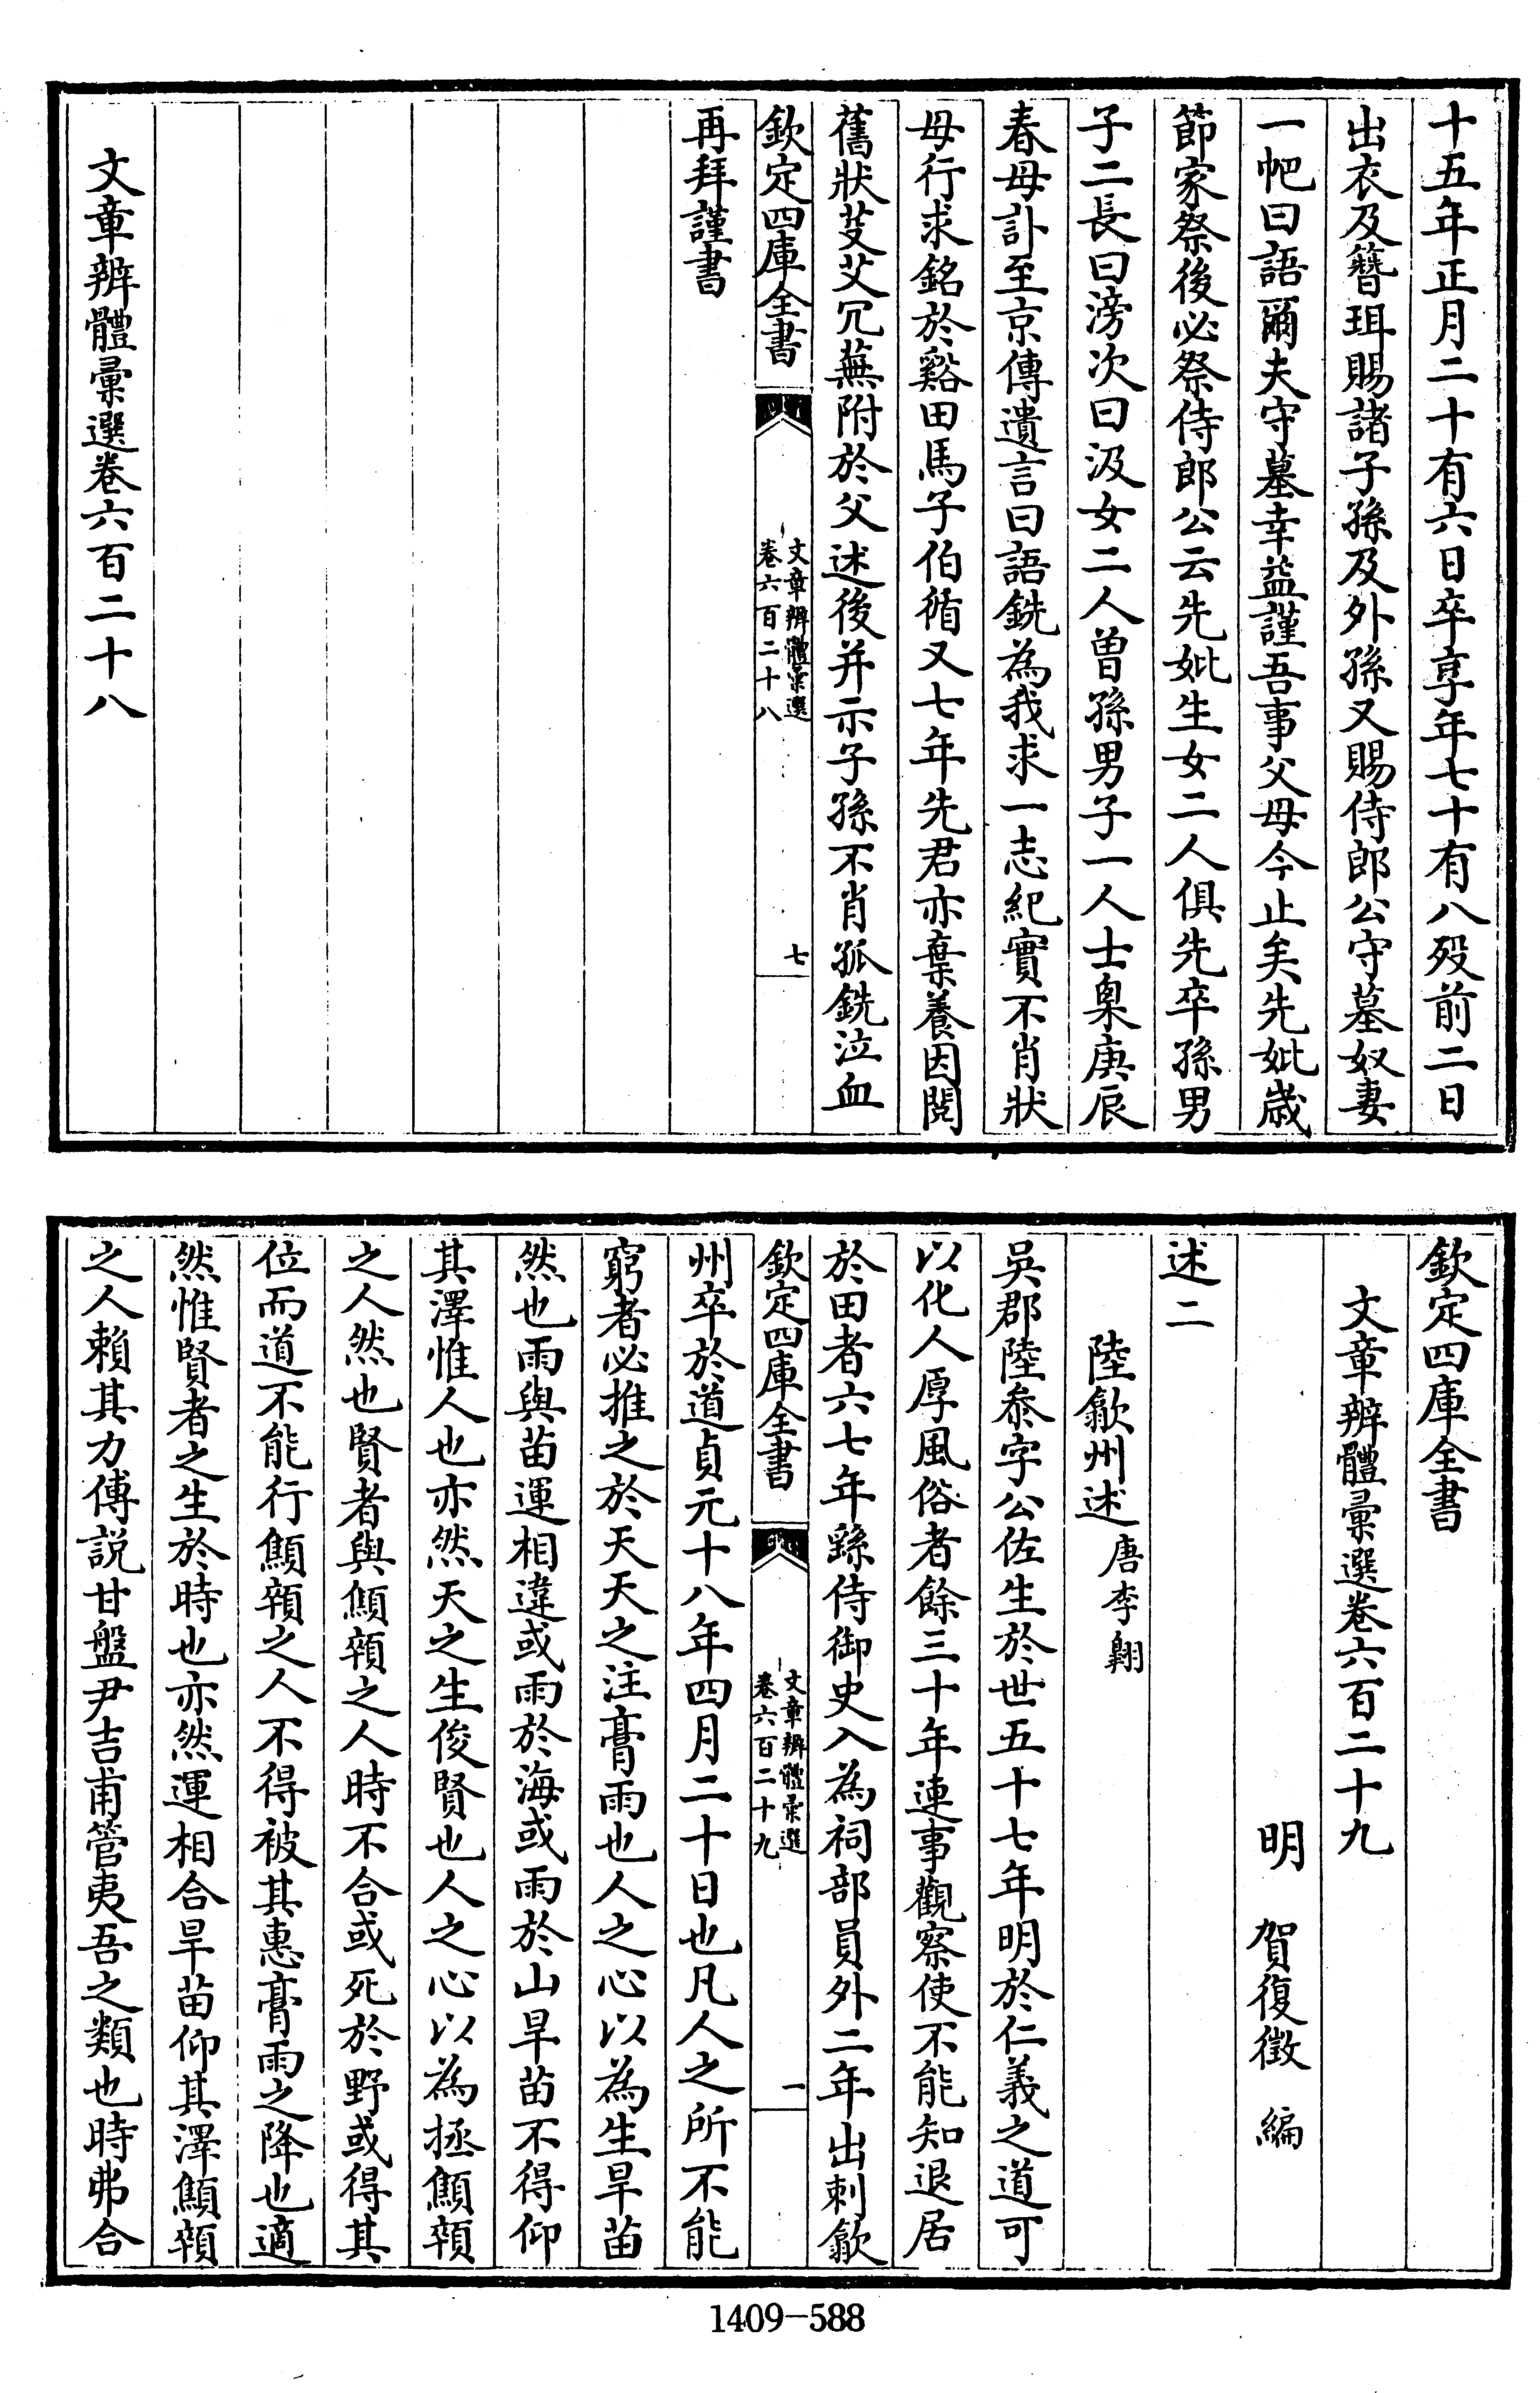 十五年正月二十有六日卒享年七十有八歿前二日
出衣及簪珥賜諸子孫及外孫又賜侍郎公守墓奴妻
一帊曰語爾夫守墓幸益謹吾事父母今止矣先妣歳
節家祭後必祭侍郎公云先妣生女二人俱先卒孫男
子二長曰滂次曰汲女二人曾孫男子一人士臬庚辰
春母訃至京傳遺言曰語銑為我求一志紀實不肖狀
母行求銘於谿田馬子伯循又七年先君亦棄養因閱
舊狀芟艾冗蕪附於父述後并示子孫不肖孤銑泣血
欽定四庫全書
文章辨體彙選
卷六百二十八
七
再拜謹書
文章辨體彙選卷六百二十八
欽定四庫全書
文章辨體彙選卷六百二十九
明 賀復徵 編
述二
陸歙州述 唐李翺
吳郡陸叅字公佐生於世五十七年明於仁義之道可
以化人厚風俗者餘三十年連事觀察使不能知退居
於田者六七年繇侍御史入為祠部員外二年出刺歙
欽定四庫全書
文章辨體彙選
卷六百二十九
一
州卒於道貞元十八年四月二十日也凡人之所不能
窮者必推之於天天之注膏雨也人之心以為生旱苗
然也雨與苗運相違或雨於海或雨於山旱苗不得仰
其澤惟人也亦然天之生俊賢也人之心以為拯顦顇
之人然也賢者與顦顇之人時不合或死於野或得其
位而道不能行顦顇之人不得被其惠膏雨之降也適
然惟賢者之生於時也亦然運相合旱苗仰其澤顦顇
之人賴其力傅説甘盤尹吉甫管夷吾之類也時弗合
1409-588